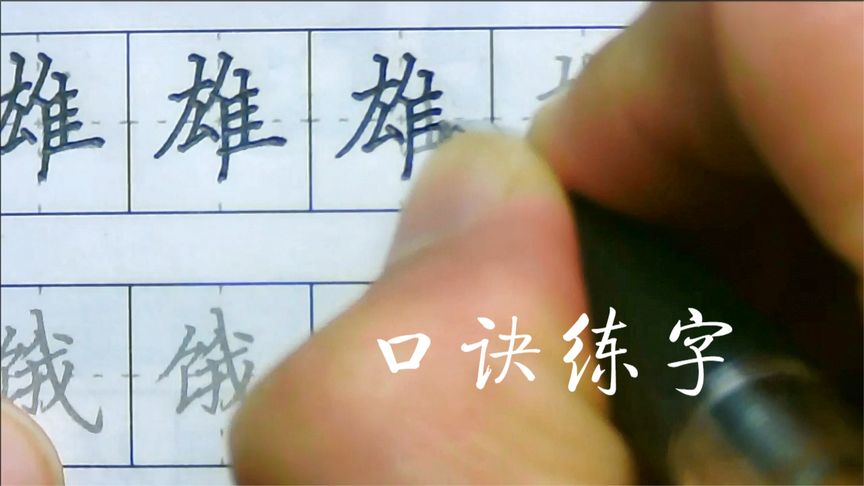 雄 雄 雄
饿 饿
口诀练字